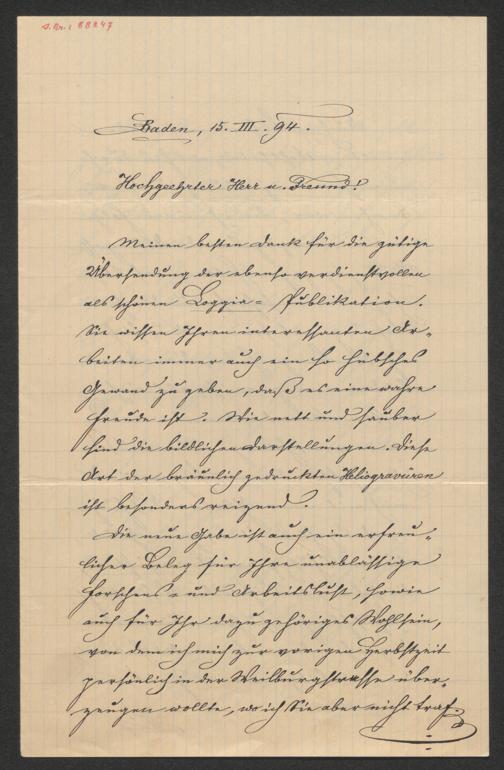 S. Nr.: 68847
Baden, 15. III. 94.
Hochgeehrter Herr u. Freund!
Meinen besten Dank für die gütige
Übersendung der ebenso verdienstvollen
als schönen Loggia-Publikation.
Sie wissen Ihren interessanten Ar-
beiten immer auch ein so hübsches
Gewand zu geben, daß es eine wahre
Freude ist. Wie nett und sauber
sind die bildlichen Darstellungen. Diese
Art der bräunlich gedruckten Heliogravüren
ist besonders reizend.
Die neue Gabe ist auch ein erfreu-
licher Beleg für Ihre unablässige
Forschens- und Arbeitslust, sowie
auch für Ihr dazu gehöriges Wohlsein,
von dem ich mich zur vorigen Herbstzeit
persönlich in der Weilburgstrasse über-
zeugen wollte, wo ich Sie aber nicht traf.